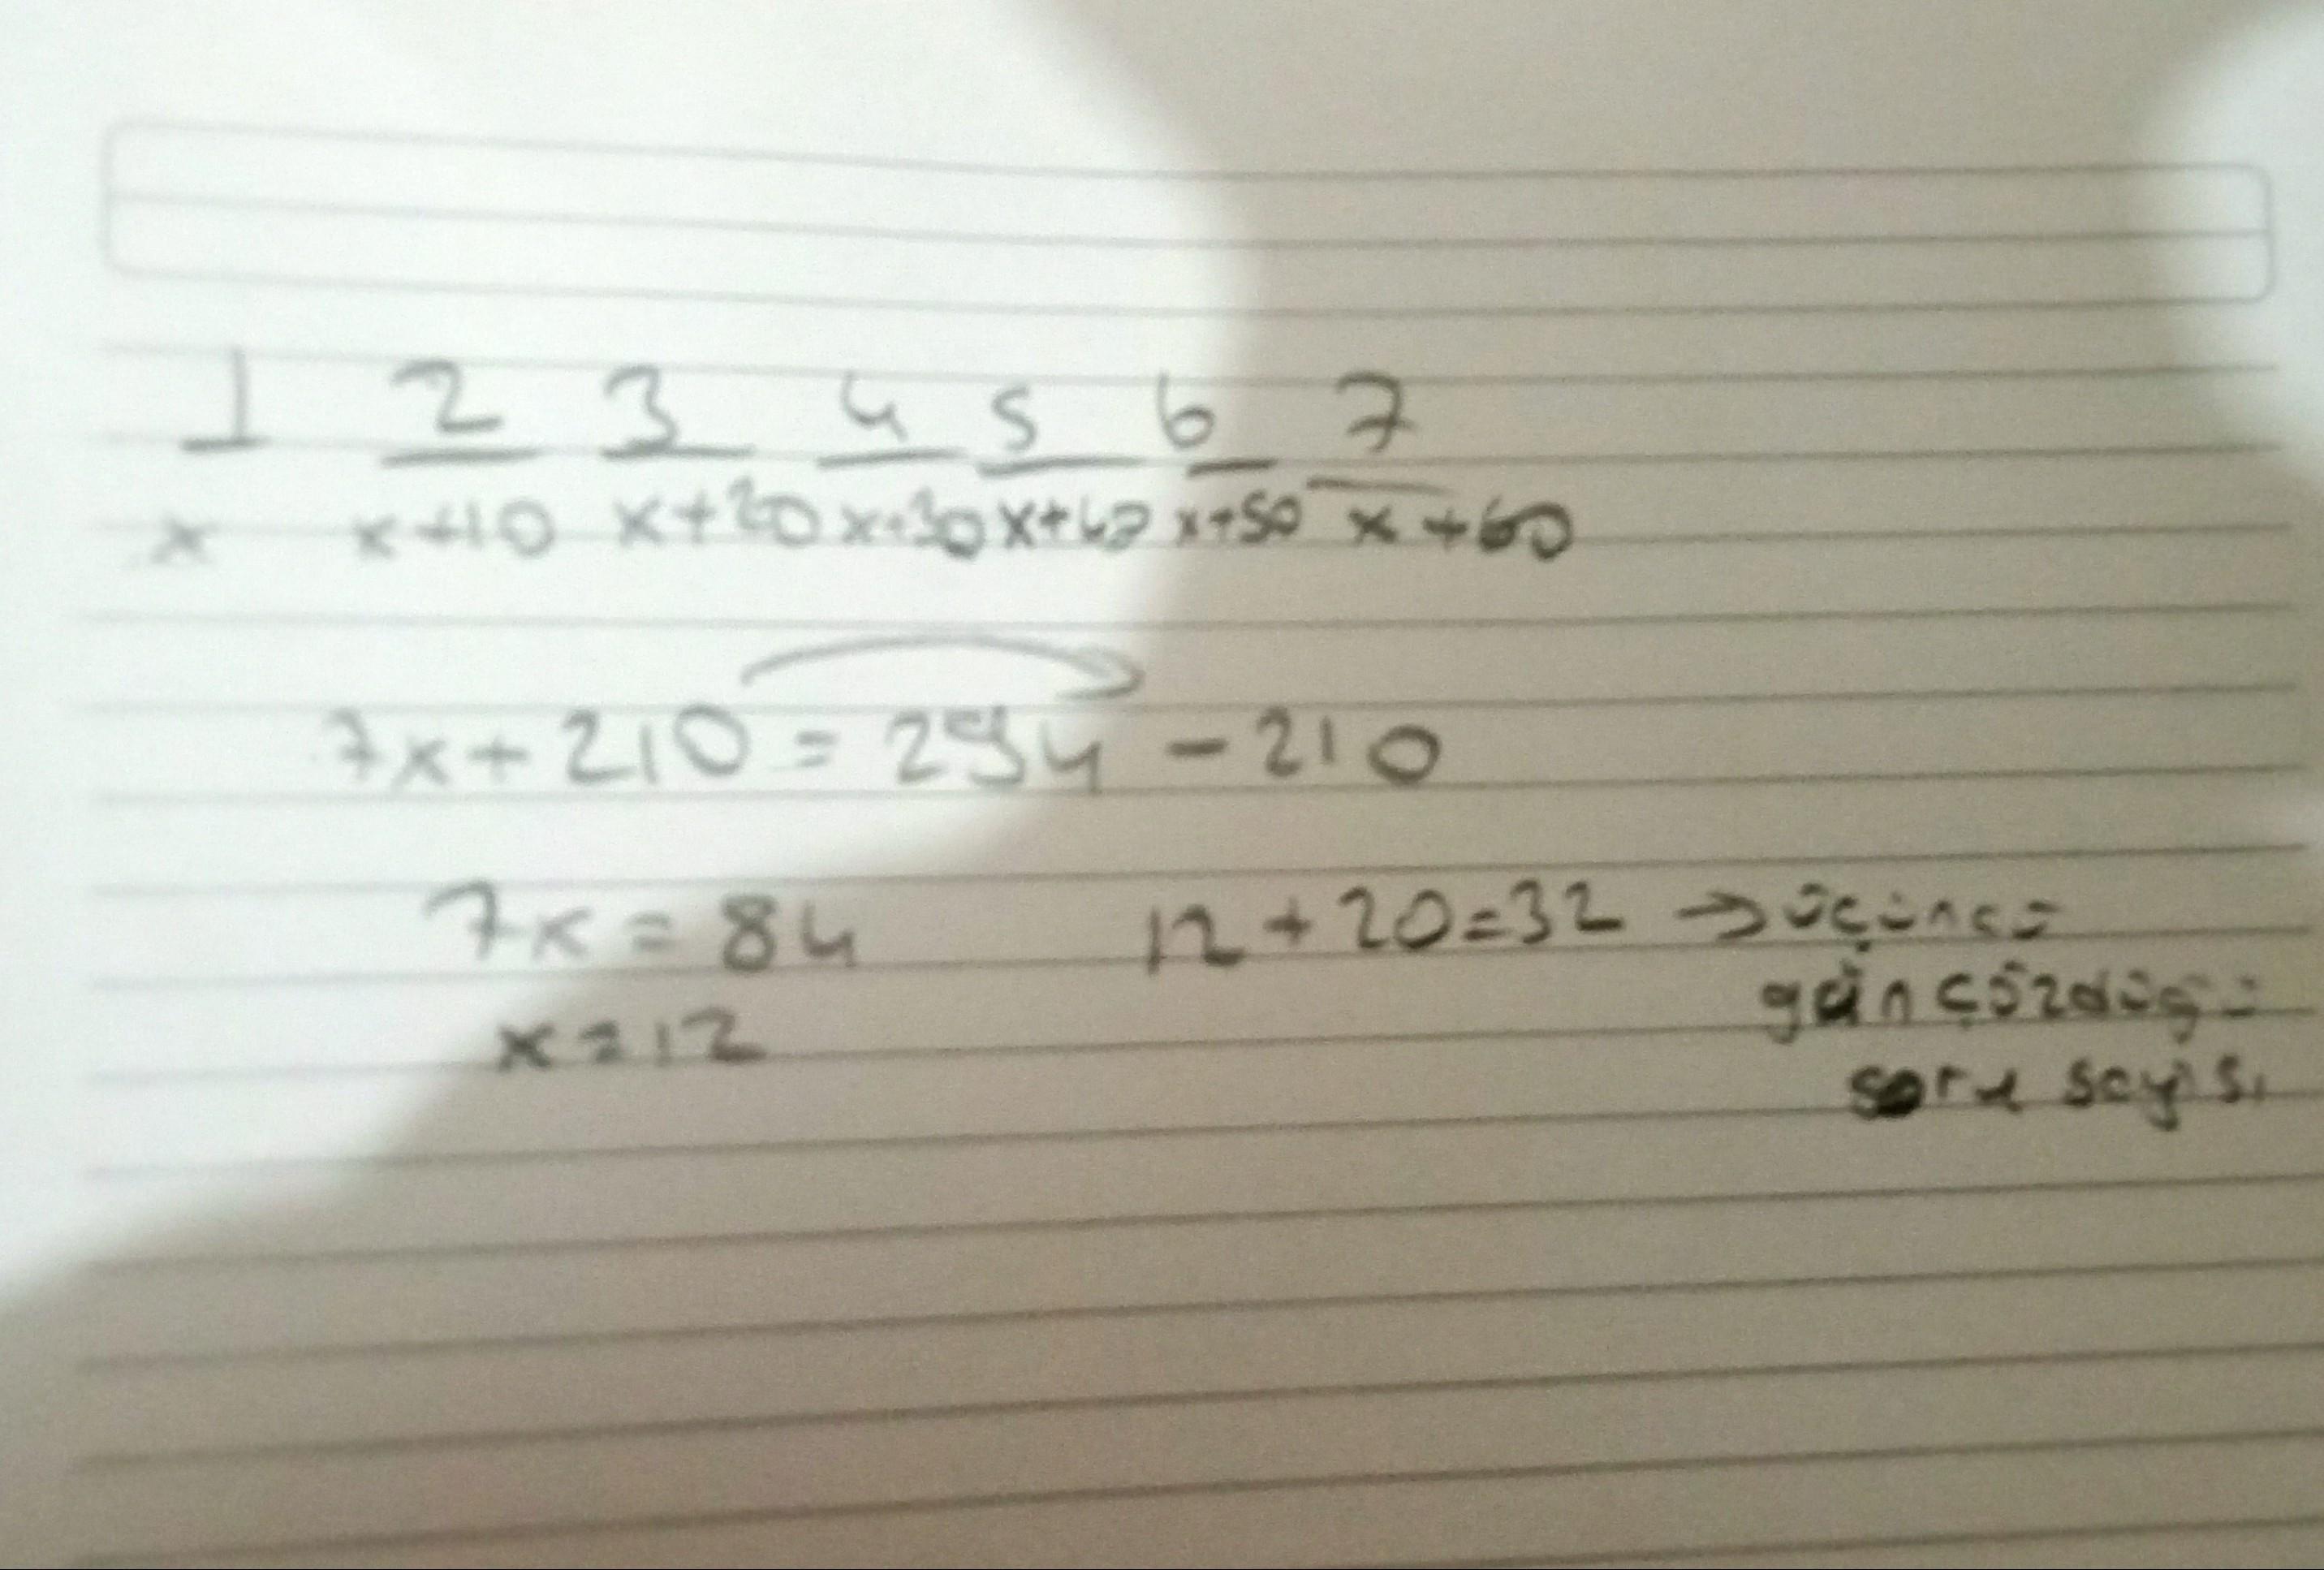 1 2 3 4 5 6 7
x x+10 x+20 x+30 x+40 x+50 x+60
7x+210=294-210
7x=84 12+20=32 → üçüncü
x=12 gün çözdüğü
soru sayısı